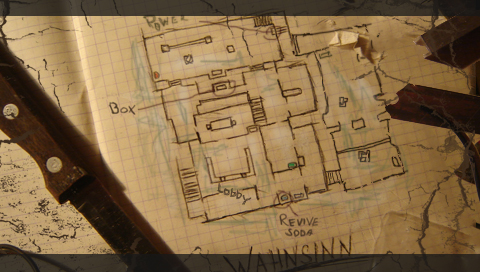 POWER
BOX
LOBBY
REVIVE
SODA
WAHNSINN